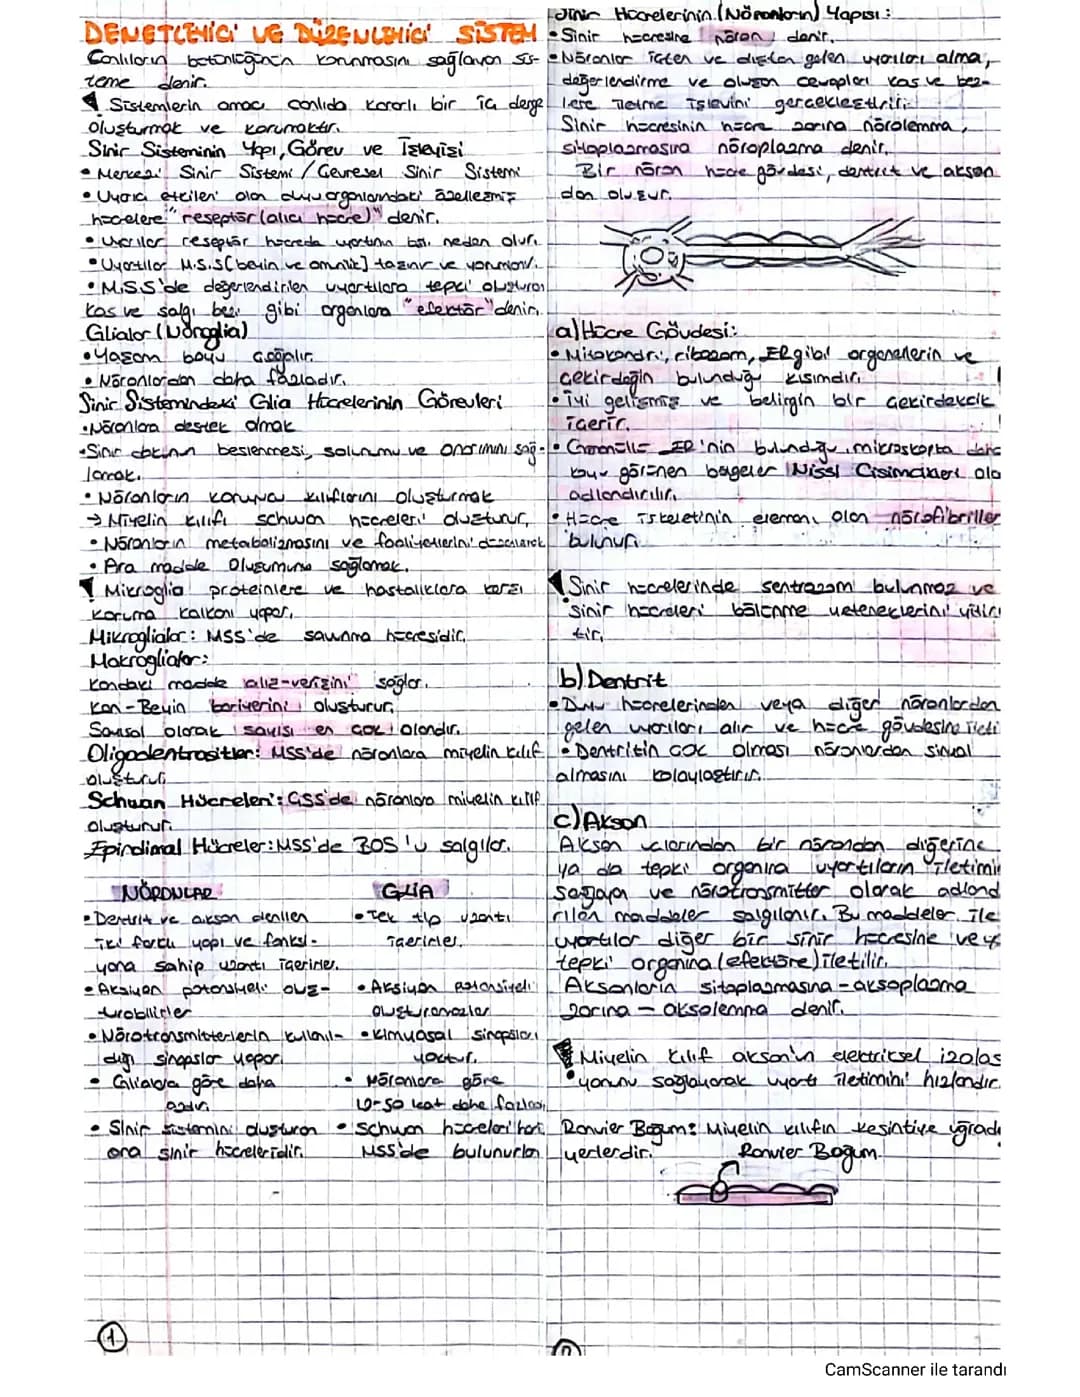 DENETLEYİCİ VE DÜZENLEYİCİ SİSTEM
Canlıların bütünlüğünün korunmasını sağlayan sis-
teme denir.
Sistemlerin amacı canlıda kararlı bir iç denge
oluşturmak ve korumaktır.
Sinir Sisteminin Yapı, Görev ve İşleyişi
• Merkezi Sinir Sistemi / Çevresel Sinir Sistemi
• Uyarıcı etkileri alan duyu organlarındaki özelleşmiş
hücrelere "reseptör (alıcı hücre)" denir.
• Uyarılar reseptör hücrede uyartının neden olur.
• Uyartılar M.S.S [beyin ve omurilik] taşınır ve yorumlanır.
• M.S.S'de değerlendirilen uyartılara tepki oluşturan
kas ve salgı bezi gibi organlara "efektör" denir.
Glialar (Nöroglia)
• Yaşam boyu çoğalır.
• Nöronlardan daha fazladır.
Sinir Sistemindeki Glia Hücrelerinin Görevleri
• Nöronlara destek olmak
• Sinir beslenmesi, solunumu ve onarımını sağ-
lamak.
• Nöronların koruyucu kılıflarını oluşturmak
→ Miyelin kılıfı schwan hücreleri oluşturur.
• Nöronların metabolizmasını ve faaliyetlerini
• Ara madde oluşumunu sağlamak.
Mikroglia proteinlere ve hastalıklara karşı
koruma kalkanı yapar.
Mikroglialar: MSS'de savunma hücresidir.
Makroglialar:
Kandaki madde alış-verişini sağlar.
Kan-Beyin bariyerini oluşturur.
Sayısal olarak sayısı en çok olandır.
Oligodentrositler: MSS'de nöronlara miyelin kılıf
oluşturur.
Schwan Hücreleri: ÇSS'de nöronlara miyelin kılıf
oluşturur.
Epindimal Hücreler: MSS'de BOS'u salgılar.
NÖRONLAR
• Dentrit ve akson denilen
iki farklı yapı ve fonksi-
yona sahip uzantı içerirler.
• Aksiyon potansiyeli oluş-
turabilirler
• Nörotransmitterlerin kullanıl-
dığı sinapslar yapar.
• Glialara göre daha
azdır.
• Sinir sistemini oluşturan
ana sinir hücreleridir.
GLIA
• Tek tip uzantı
içerirler.
• Aksiyon potansiyeli
oluşturamazlar
• Kimyasal sinapsları
yoktur.
• Nöronlara göre
10-50 kat daha fazla
• Schwan hücreleri hariç
MSS'de bulunurlar
1
Sinir Hücrelerinin (Nöronların) Yapısı:
• Sinir hücresine nöron denir.
• Nöronlar içten ve dıştan gelen uyarıları alma,
değerlendirme ve oluşan cevapları kas ve bez-
lere iletme işlevini gerçekleştirir.
Sinir hücresinin hücre zarına nörolemma,
sitoplazmasına nöroplazma denir.
Bir nöron hücre gövdesi, dentrit ve akson
dan oluşur.
a) Hücre Gövdesi:
• Mitokondri, ribozom, ER gibi organellerin ve
çekirdeğin bulunduğu kısımdır.
• İyi gelişmiş ve belirgin bir çekirdekcik
içerir.
• Granüllü ER'nin bulunduğu, mikroskopta
koyu görünen bölgeler Nissl Cisimcikleri ola
adlandırılır.
• Hücre iskeletinin elemanı olan nörofibriller
bulunur.
Sinir hücrelerinde sentrozom bulunmaz ve
sinir hücreleri bölünme yeteneklerini yitirmiş
tir.
b) Dentrit
• Duyu hücrelerinden veya diğer nöronlardan
gelen uyarıları alır ve hücre gövdesine iletir
• Dentritin çok olması nöronlardan sinyal
almasını kolaylaştırır.
c) Akson
Akson uçlarından bir nörondan diğerine
ya da tepki organına uyartıların iletimini
sağlayan ve nörotransmitter olarak adland
rılan maddeler salgılanır. Bu maddeler ile
uyartılar diğer bir sinir hücresine veya
tepki organına (efektöre) iletilir.
Aksonların sitoplazmasına - aksoplazma
zarına - aksolemna denir.
Miyelin kılıf akson'un elektriksel izolas
yonunu sağlayarak uyartı iletimini hızlandır.
Ranvier Boğum: Miyelin kılıfın kesintiye uğradı
yerlerdir.
Ranvier Boğum.
CamScanner ile tarandı